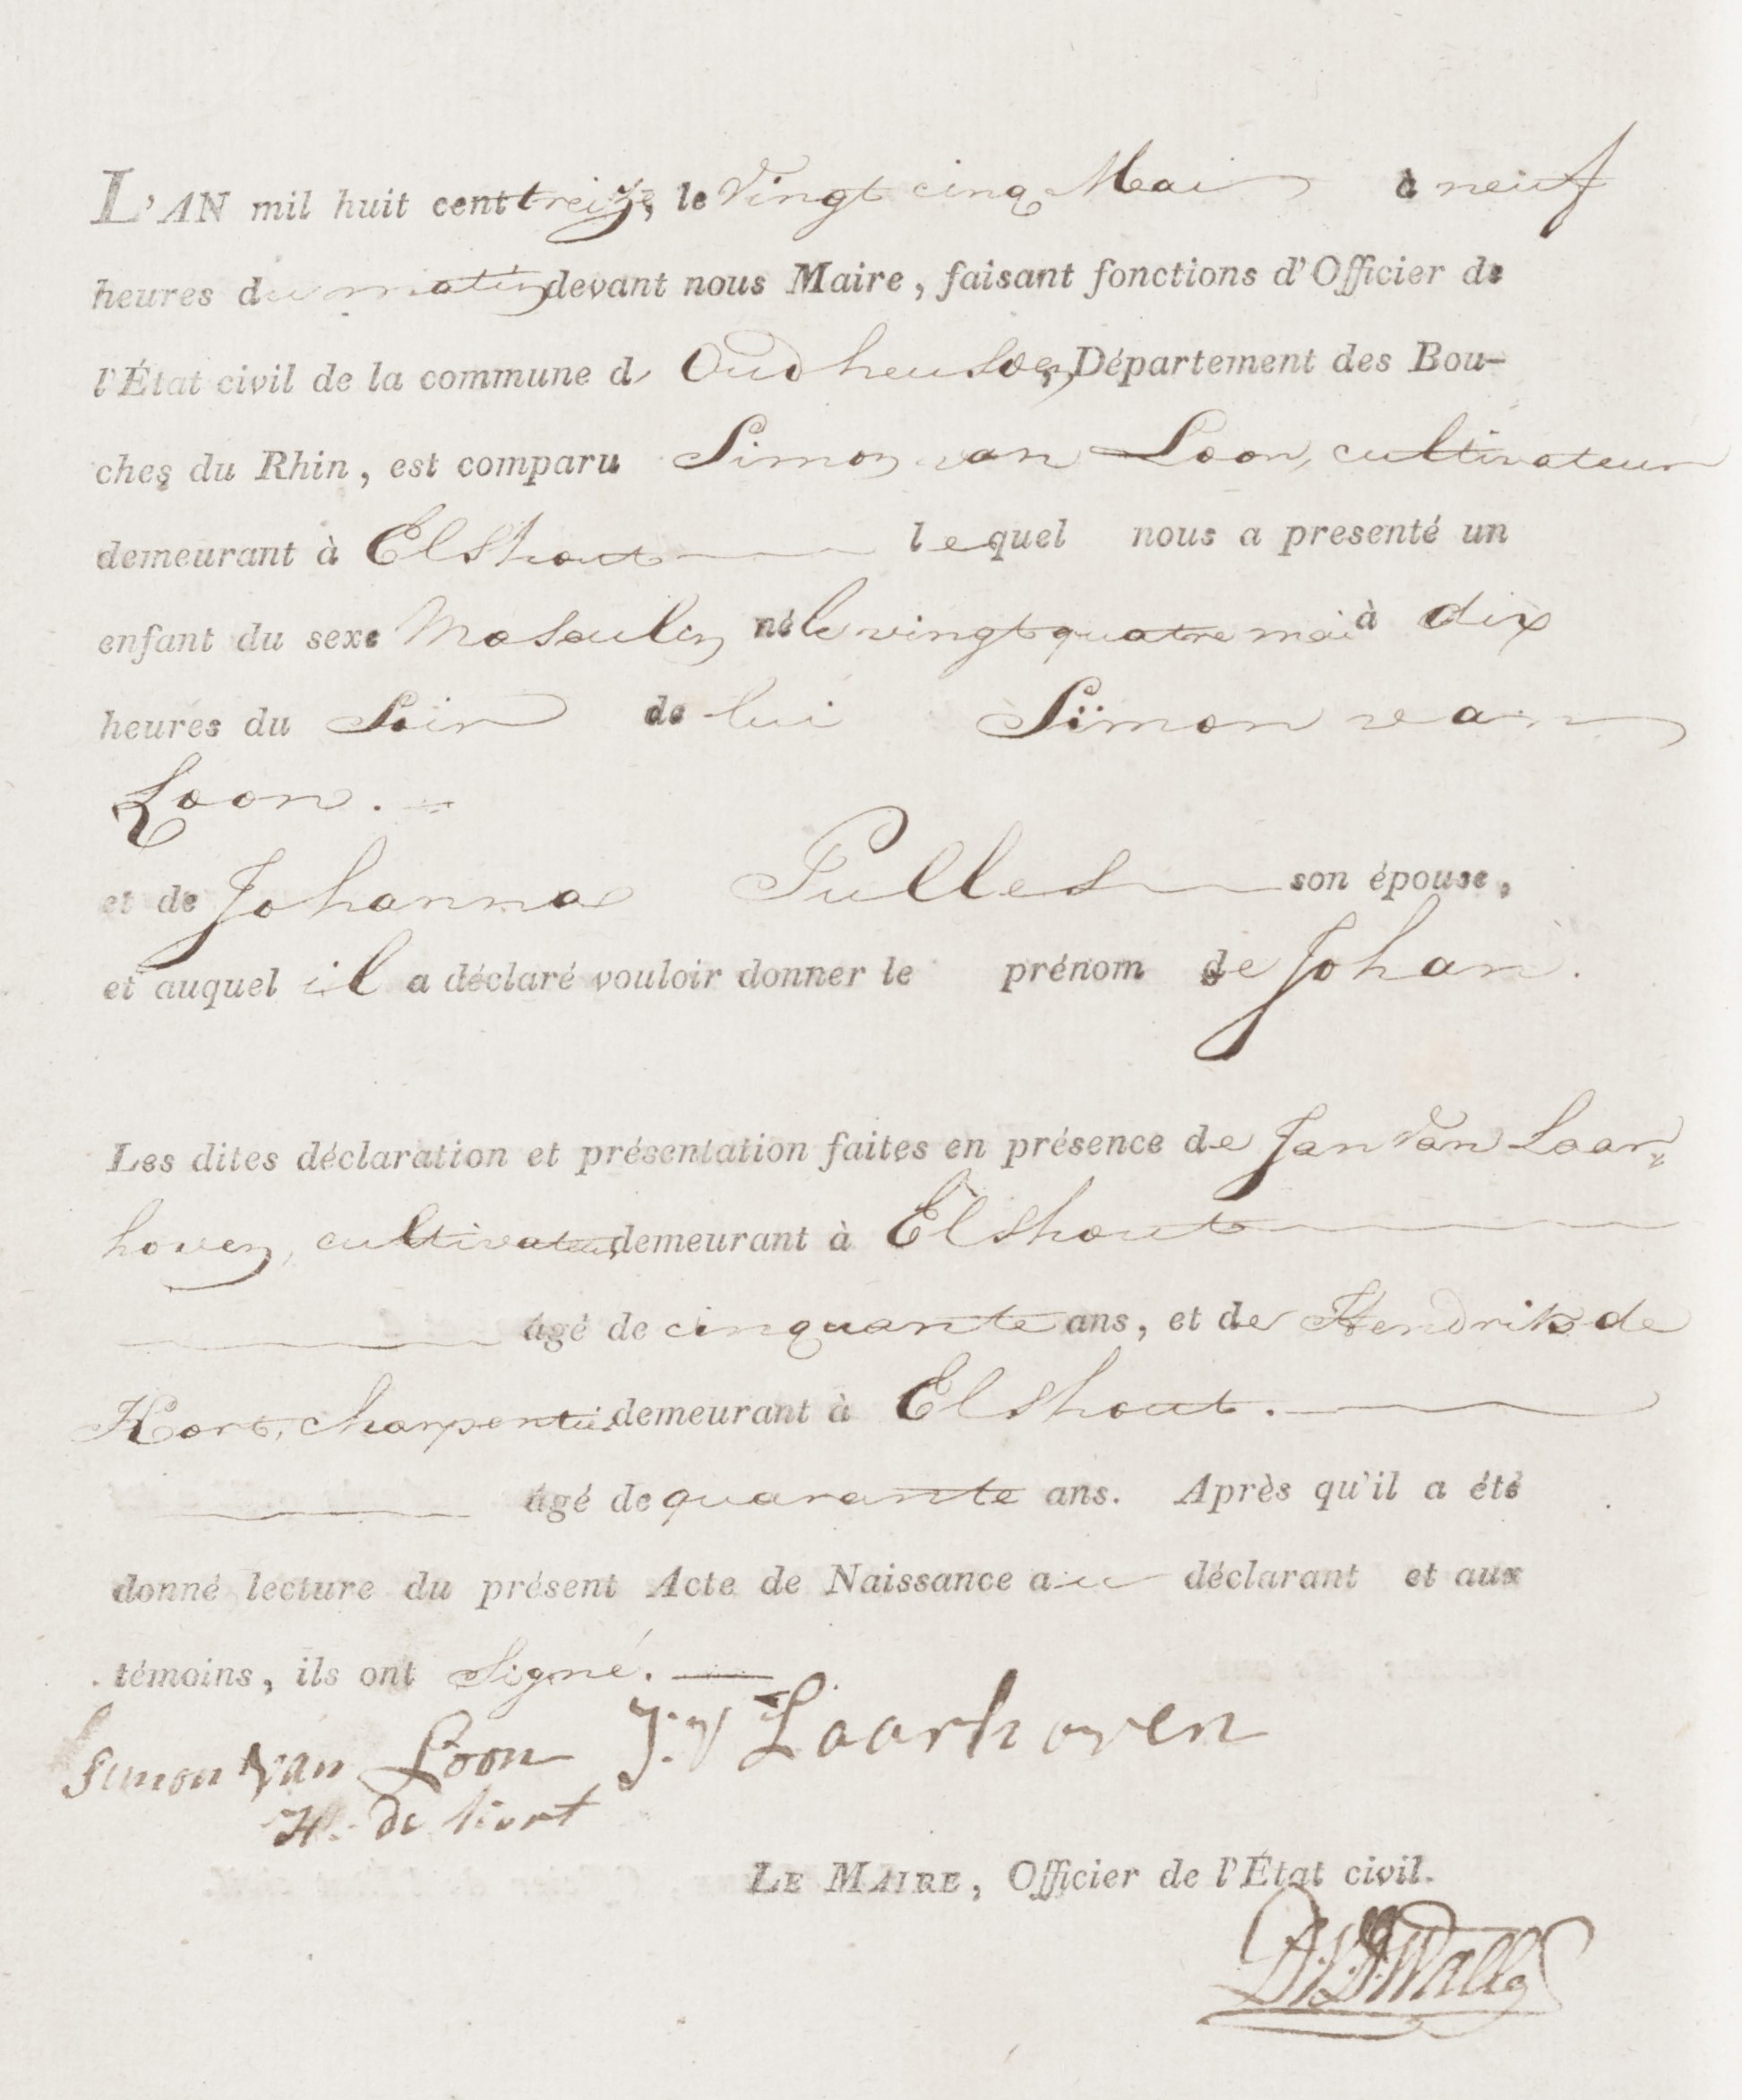 L'AN mil huit cent treize, le Vingt cinq Mai à neuf
heures du matin devant nous Maire, faisant fonctions d'Officier de
l'État civil de la commune d Oudheusden, Département des Bou-
ches du Rhin, est comparu Simon van Loon, cultivateur
demeurant à Elshout lequel nous a presenté un
enfant du sexe Masculin né le vingt quatre mai à dix
heures du Soir de lui Simon van
Loon.
et de Johanna Pulles son épouse,
et auquel il a déclaré vouloir donner le prénom de Johan.
Les dites déclaration et présentation faites en présence de Jan van Laar,
hoven, cultivateur, demeurant à Elshout
âgé de cinquante ans, et de Hendrik de
Kort, charpentier demeurant à Elshout.
âgé de quarante ans. Après qu'il a été
donné lecture du présent Acte de Naissance au déclarant et aux
témoins, ils ont Signé.
Simon van Loon J: v Laarhoven
H. de kort
LE MAIRE, Officier de l'État civil.